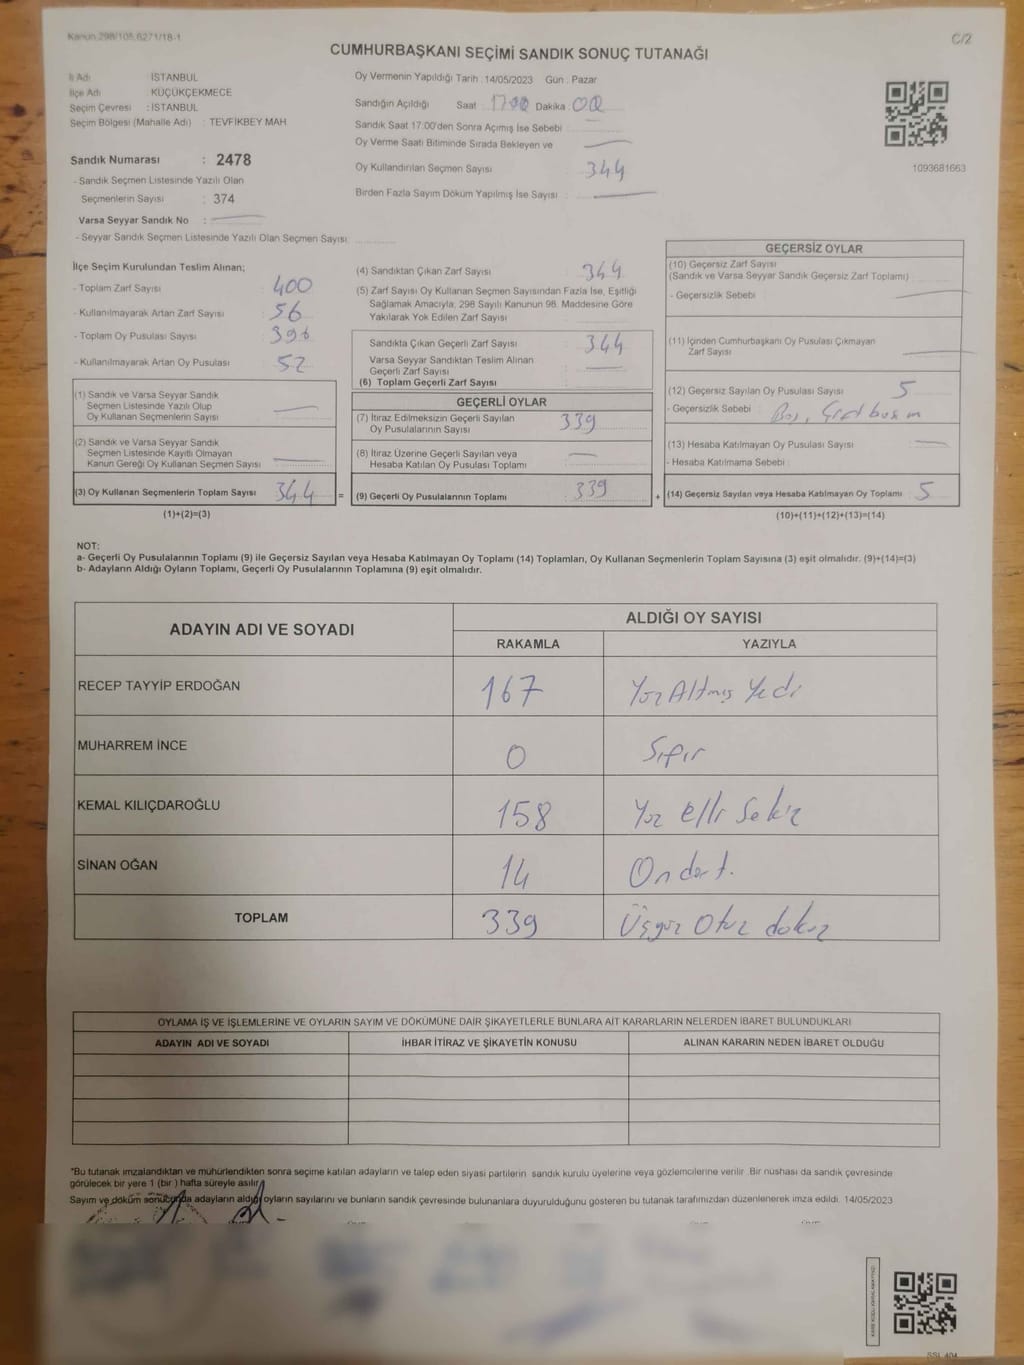 Kanun 298/105,6271/18-1
C/2
CUMHURBAŞKANI SEÇİMİ SANDIK SONUÇ TUTANAĞI
İl Adı : İSTANBUL
İlçe Adı : KÜÇÜKÇEKMECE
Seçim Çevresi : İSTANBUL
Seçim Bölgesi (Mahalle Adı) : TEVFİKBEY MAH
Oy Vermenin Yapıldığı Tarih : 14/05/2023 Gün : Pazar
Sandığın Açıldığı Saat 17:00 Dakika : 00
Sandık Saat 17:00'den Sonra Açımış İse Sebebi :
Oy Verme Saati Bitiminde Sırada Bekleyen ve
Oy Kullandırılan Seçmen Sayısı : 344
Birden Fazla Sayım Döküm Yapılmış İse Sayısı :
1093681663
Sandık Numarası : 2478
- Sandık Seçmen Listesinde Yazılı Olan
Seçmenlerin Sayısı : 374
Varsa Seyyar Sandık No :
- Seyyar Sandık Seçmen Listesinde Yazılı Olan Seçmen Sayısı:
İlçe Seçim Kurulundan Teslim Alınan;
- Toplam Zarf Sayısı : 400
- Kullanılmayarak Artan Zarf Sayısı : 56
- Toplam Oy Pusulası Sayısı : 396
- Kullanılmayarak Artan Oy Pusulası : 52
(1) Sandık ve Varsa Seyyar Sandık
Seçmen Listesinde Yazılı Olup
Oy Kullanan Seçmenlerin Sayısı :
(2) Sandık ve Varsa Seyyar Sandık
Seçmen Listesinde Kayıtlı Olmayan
Kanun Gereği Oy Kullanan Seçmen Sayısı :
(3) Oy Kullanan Seçmenlerin Toplam Sayısı : 344
(1)+(2)=(3)
(4) Sandıktan Çıkan Zarf Sayısı : 344
(5) Zarf Sayısı Oy Kullanan Seçmen Sayısından Fazla İse, Eşitliği
Sağlamak Amacıyla, 298 Sayılı Kanunun 98. Maddesine Göre
Yakılarak Yok Edilen Zarf Sayısı :
Sandıkta Çıkan Geçerli Zarf Sayısı : 344
Varsa Seyyar Sandıktan Teslim Alınan
Geçerli Zarf Sayısı :
(6) Toplam Geçerli Zarf Sayısı :
GEÇERLİ OYLAR
(7) İtiraz Edilmeksizin Geçerli Sayılan
Oy Pusulalarının Sayısı : 339
(8) İtiraz Üzerine Geçerli Sayılan veya
Hesaba Katılan Oy Pusulası Toplamı :
= (9) Geçerli Oy Pusulalarının Toplamı : 339 +
GEÇERSİZ OYLAR
(10) Geçersiz Zarf Sayısı
(Sandık ve Varsa Seyyar Sandık Geçersiz Zarf Toplamı) :
- Geçersizlik Sebebi :
(11) İçinden Cumhurbaşkanı Oy Pusulası Çıkmayan
Zarf Sayısı :
(12) Geçersiz Sayılan Oy Pusulası Sayısı : 5
- Geçersizlik Sebebi : Boş,
(13) Hesaba Katılmayan Oy Pusulası Sayısı :
- Hesaba Katılmama Sebebi :
(14) Geçersiz Sayılan veya Hesaba Katılmayan Oy Toplamı : 5
(10)+(11)+(12)+(13)=(14)
NOT:
a- Geçerli Oy Pusulalarının Toplamı (9) ile Geçersiz Sayılan veya Hesaba Katılmayan Oy Toplamı (14) Toplamları, Oy Kullanan Seçmenlerin Toplam Sayısına (3) eşit olmalıdır. (9)+(14)=(3)
b- Adayların Aldığı Oyların Toplamı, Geçerli Oy Pusulalarının Toplamına (9) eşit olmalıdır.
ADAYIN ADI VE SOYADI
ALDIĞI OY SAYISI
RAKAMLA YAZIYLA
RECEP TAYYİP ERDOĞAN 167 Yüz Altmış Yedi
MUHARREM İNCE 0 Sıfır
KEMAL KILIÇDAROĞLU 158 Yüz elli Sekiz
SİNAN OĞAN 14 Ondört.
TOPLAM 339 Üçyüz Otuz dokuz
OYLAMA İŞ VE İŞLEMLERİNE VE OYLARIN SAYIM VE DÖKÜMÜNE DAİR ŞİKAYETLERLE BUNLARA AİT KARARLARIN NELERDEN İBARET BULUNDUKLARI
ADAYIN ADI VE SOYADI İHBAR İTİRAZ VE ŞİKAYETİN KONUSU ALINAN KARARIN NEDEN İBARET OLDUĞU
*Bu tutanak imzalandıktan ve mühürlendikten sonra seçime katılan adayların ve talep eden siyasi partilerin sandık kurulu üyelerine veya gözlemcilerine verilir. Bir nüshası da sandık çevresinde
görülecek bir yere 1 (bir) hafta süreyle asılır.
Sayım ve döküm sonucunda adayların aldığı oyların sayılarını ve bunların sandık çevresinde bulunanlara duyurulduğunu gösteren bu tutanak tarafımızdan düzenlenerek imza edildi. 14/05/2023